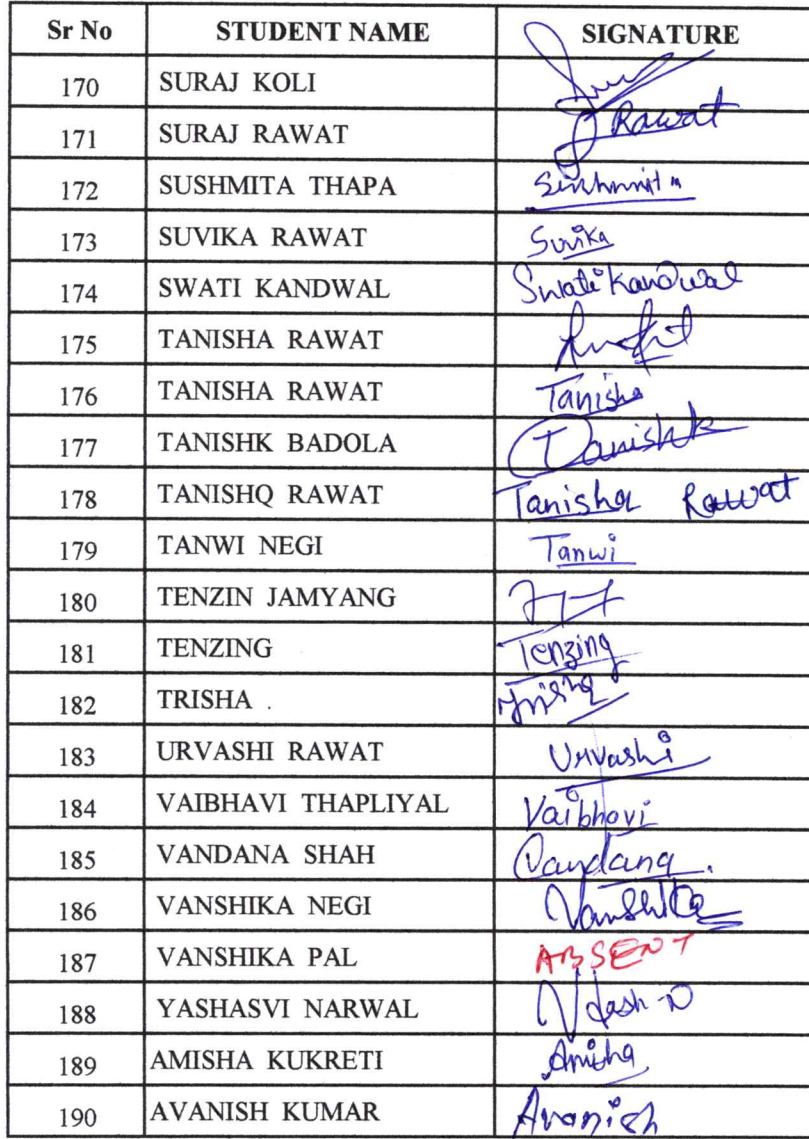 Sr No STUDENT NAME SIGNATURE
170 SURAJ KOLI
171 SURAJ RAWAT Rawat
172 SUSHMITA THAPA Sushmita
173 SUVIKA RAWAT Suvika
174 SWATI KANDWAL Swati Kandwal
175 TANISHA RAWAT
176 TANISHA RAWAT Tanisha
177 TANISHK BADOLA Tanishk
178 TANISHQ RAWAT Tanishq Rawat
179 TANWI NEGI Tanwi
180 TENZIN JAMYANG
181 TENZING Tenzing
182 TRISHA . Trisha
183 URVASHI RAWAT Urvashi
184 VAIBHAVI THAPLIYAL Vaibhavi
185 VANDANA SHAH Vandana.
186 VANSHIKA NEGI Vanshika
187 VANSHIKA PAL ABSENT
188 YASHASVI NARWAL
189 AMISHA KUKRETI Amisha
190 AVANISH KUMAR Avanish